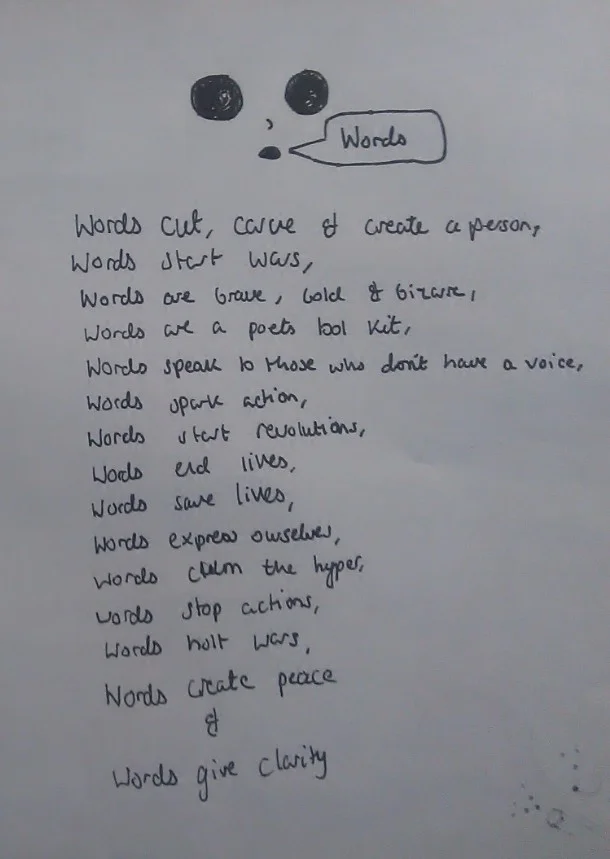 Words
Words cut, carve & create a person,
Words start wars,
Words are brave, bold & bizare,
Words are a poets tool kit,
Words speak to those who don't have a voice,
Words spark action,
Words start revolutions,
Words end lives,
Words save lives,
Words express ourselves,
Words calm the hyper,
Words stop actions,
Words holt wars,
Words create peace
&
Words give clarity